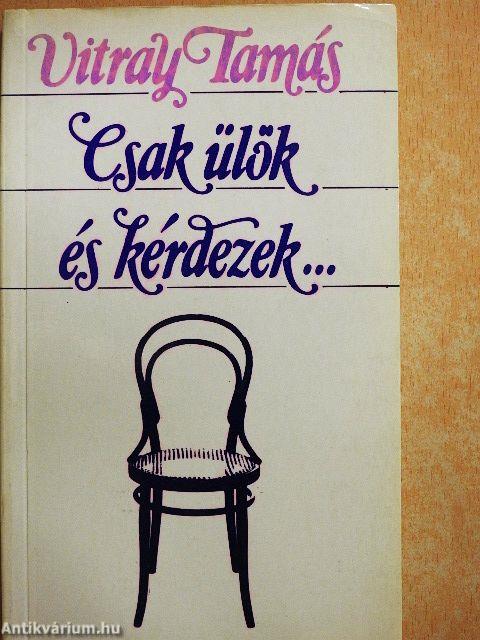 Vitray Tamás
Csak ülök
és kérdezek...
Antikvárium.hu